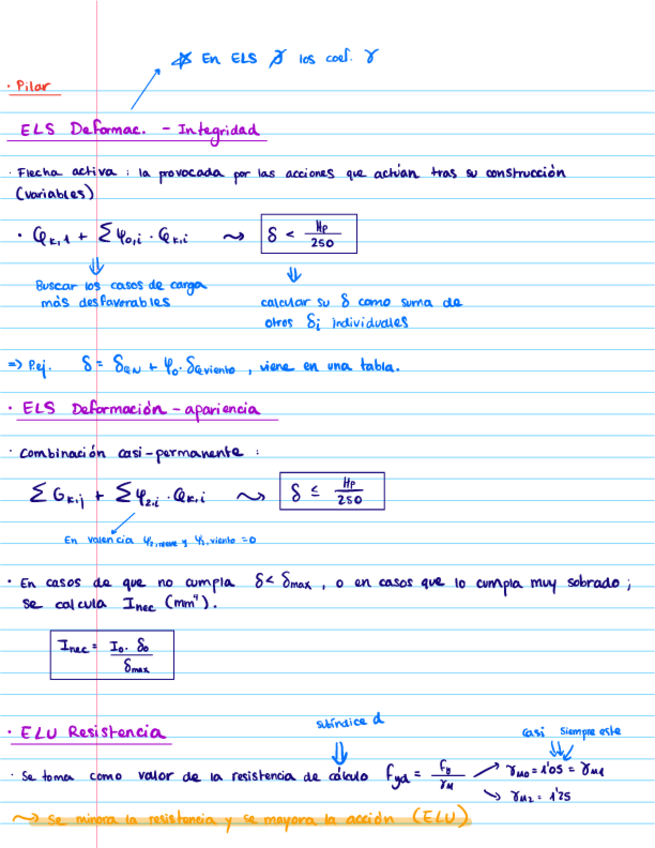 * En ELS ∄ los coef. γ
· Pilar
ELS Deformac. - Integridad
· Flecha activa : la provocada por las acciones que actúan tras su construcción
(variables)
· Qk,1 + Σ ψ0,i · Qk,i ⇝ δ < Hp/250
Buscar los casos de carga
más desfaverables
calcular su δ como suma de
otros δi individuales
=> P.ej. δ = δQN + φ0 · δQviento , viene en una tabla.
· ELS Deformación - apariencia
· Combinación casi-permanente :
Σ Gk,j + Σ φ2,i · Qk,i ⇝ δ ≤ Hp/250
En valencia ψ2,nieve y ψ2,viento = 0
· En casos de que no cumpla δ < δmax , o en casos que lo cumpla muy sobrado ;
se calcula Inec (mm⁴).
Inec = I0 · δ0 / δmax
· ELU Resistencia
subíndice d
casi siempre este
· Se toma como valor de la resistencia de cálculo fyd = fy/γM
γM0 = 1'05 = γM1
γM2 = 1'25
⇝ Se minora la resistencia y se mayora la acción (ELU)